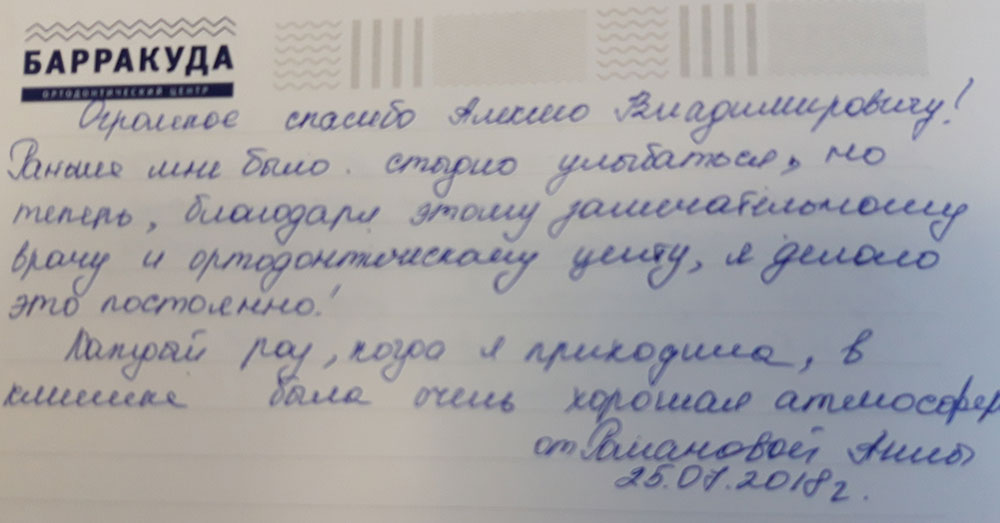 БАРРАКУДА
ОРТОДОНТИЧЕСКИЙ ЦЕНТР
Огромное спасибо Алексею Владимировичу!
Раньше мне было стыдно улыбаться, но
теперь, благодаря этому замечательному
врачу и ортодонтическому центу, я делаю
это постоянно!
Каждый раз, когда я приходила, в
клинике была очень хорошая атмосфер
от Романовой Анны
25.07.2018г.